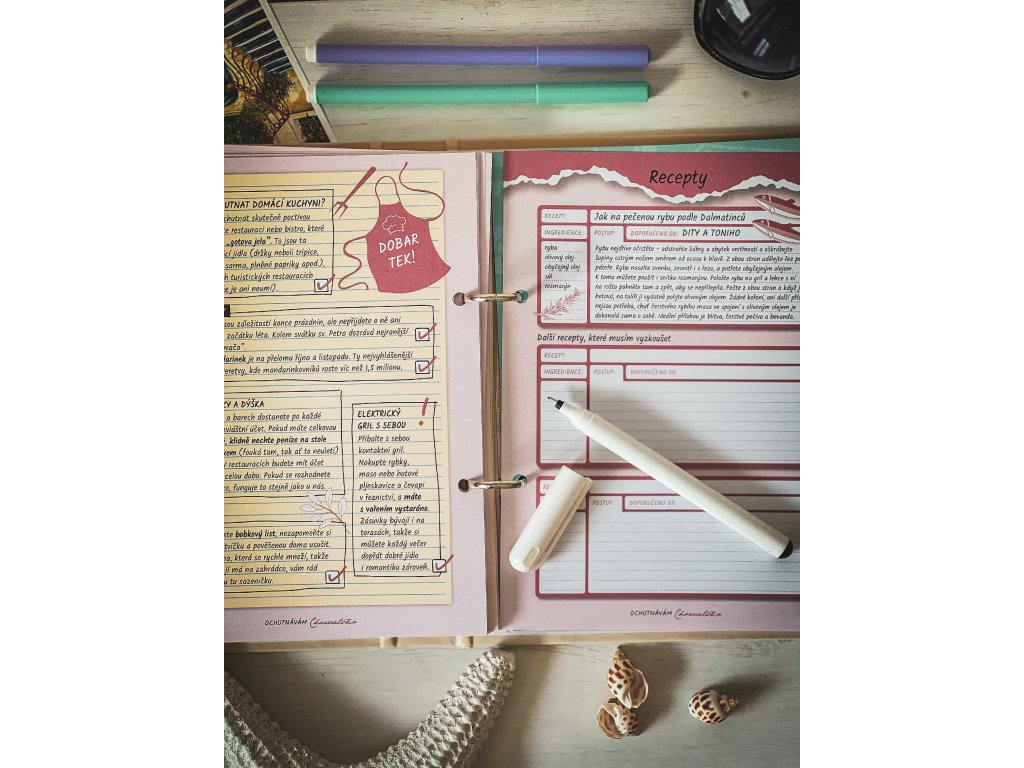 UTNAT DOMÁCÍ KUCHYNI?
chutnat skutečně poctivou
te restauraci nebo bistro, které
„gotova jela". To jsou ta
ící jídla (držky neboli tripice,
sarma, plněné papriky apod.),
h turistických restauracích
e je ani neumí).
DOBAR
TEK!
sou záležitostí konce prázdnin, ale nepřijdete o ně ani
začátku léta. Kolem svátku sv. Petra dozrává nejranější
vača".
darinek je na přelomu října a listopadu. Ty nejvyhlášenější
eretvy, kde mandarinkovníků roste víc než 1,5 milionu.
KY A DÝŠKA
a barech dostanete po každé
vláštní účet. Pokud máte celkovou
klidně nechte peníze na stole
kem (fouká tam, tak ať to neuletí)
V restauracích budete mít účet
celou dobu. Pokud se rozhodnete
o, funguje to stejně jako u nás.
ELEKTRICKÝ
GRIL S SEBOU
Přibalte s sebou
kontaktní gril.
Nakupte rybky,
maso nebo hotové
pljeskavice a čevapi
v řeznictví, a máte
s vařením vystaráno.
Zásuvky bývají i na
terasách, takže si
můžete každý večer
dopřát dobré jídlo
i romantiku zároveň.
ste bobkový list, nezapomeňte si
tvičku a pověšenou doma usušit.
na, která se rychle množí, takže
jí má na zahrádce, vám rád
u tu sazeničku.
OCHUTNÁVÁM Chorvatsko
Recepty
RECEPT: Jak na pečenou rybu podle Dalmatinců
INGREDIENCE: POSTUP: DOPORUČENO OD: DITY A TONIHO
ryba
olivový olej
obyčejný olej
sůl
rozmarýn
Rybu nejdříve očistěte – odstraňte žábry a zbytek vnitřností a oškrábejte
šupiny ostrým nožem směrem od ocasu k hlavě. Z obou stran udělejte řez po
páteře. Rybu nasolte zvenku, zevnitř i v řezu, a potřete obyčejným olejem.
K tomu můžete použít i snítku rozmarýnu. Položte rybu na gril a lehce s ní
na roštu pohněte tam a zpět, aby se nepřilepila. Pečte z obou stran a když j
hotová, na talíři ji vydatně polijte olivovým olejem. Žádné koření, ani další přís
nejsou potřeba, chuť čerstvého rybího masa ve spojení s olivovým olejem je
dokonalá sama o sobě. Ideální přílohou je blitva, čerstvé pečivo a bevanda.
Další recepty, které musím vyzkoušet
RECEPT:
INGREDIENCE: POSTUP: DOPORUČENO OD:
POSTUP: DOPORUČENO OD:
OCHUTNÁVÁM Chorvatsko